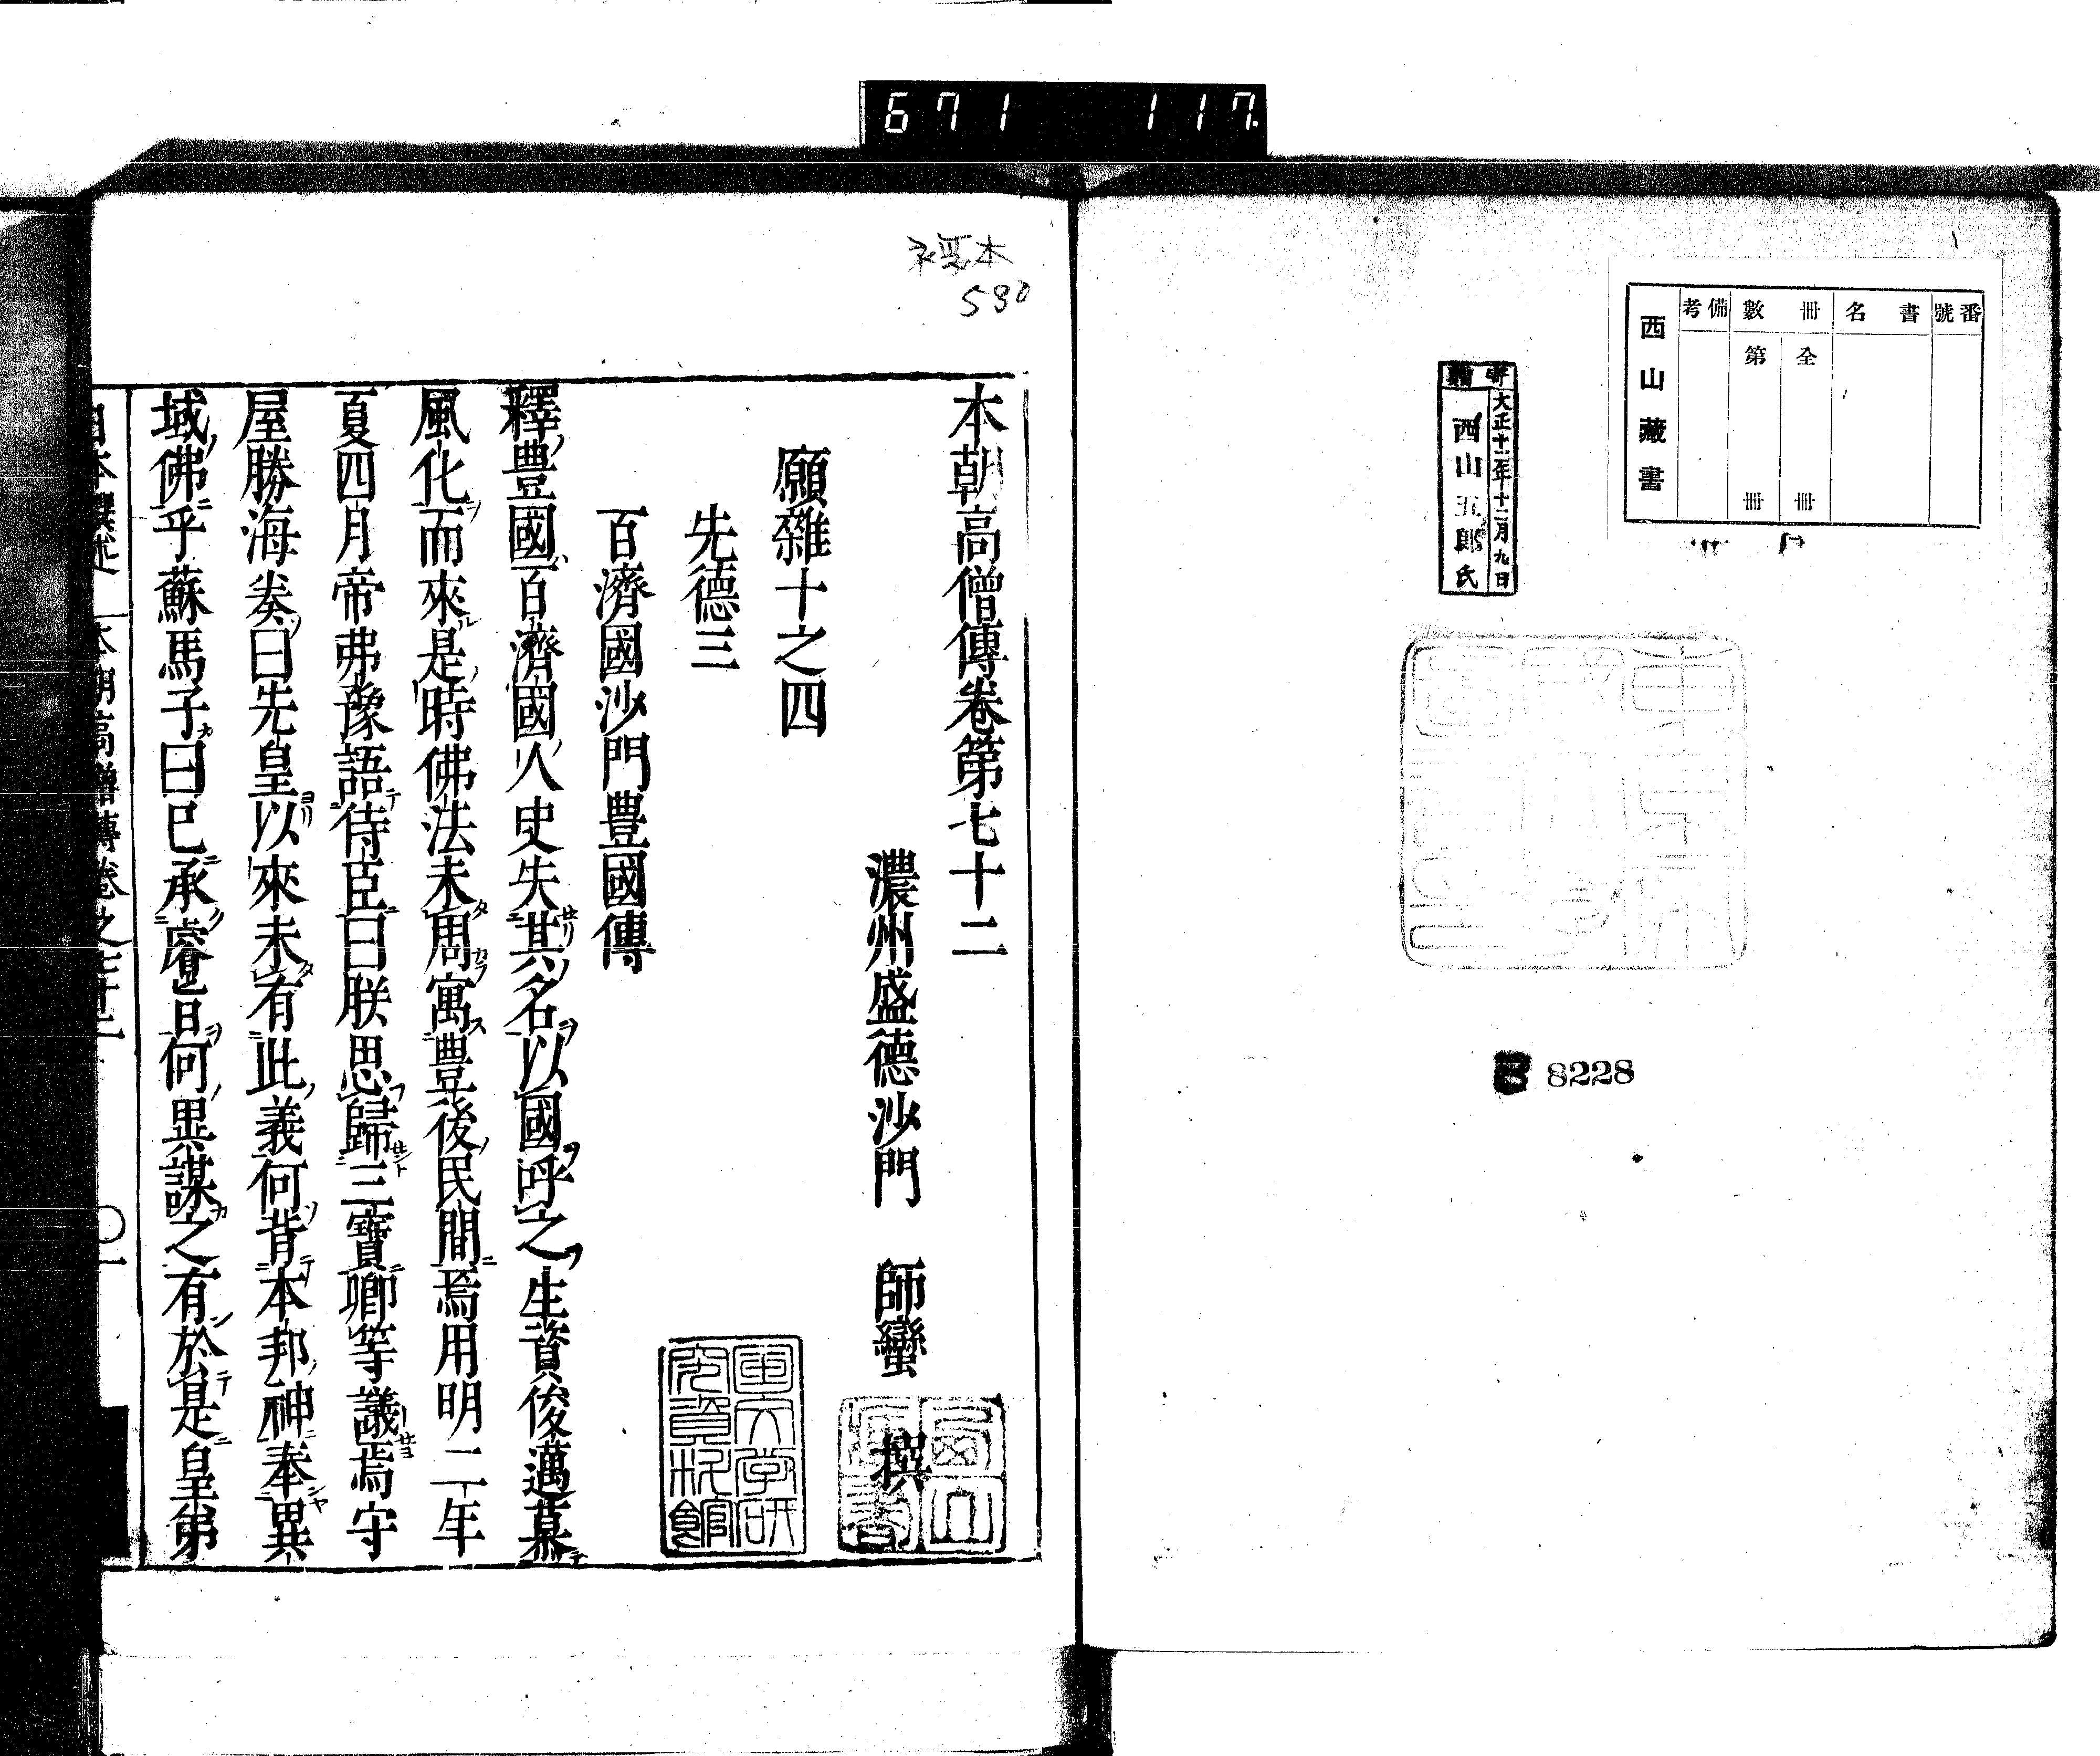 671 117.
番號
書名
冊數
備考
全 冊
第 冊
西山藏書
寄贈
大正十二年十二月九日
西山五郎氏
8228
530
本朝高僧傳卷第七十二
濃州盛德沙門 師蠻 撰
願雜十之四
先德三
百濟國沙門豊國傳
釋豊國百濟國人史失其名以國呼之生資俊邁慕
風化而來是時佛法未周寓豊後民間焉用明二年
夏四月帝弗豫語侍臣曰朕思歸三寶卿等議焉守
屋勝海奏曰先皇以來未有此義何背本邦神奉異
域佛乎蘇馬子曰已承睿旨何異謀之有於是皇弟
本朝高僧傳卷之七十二